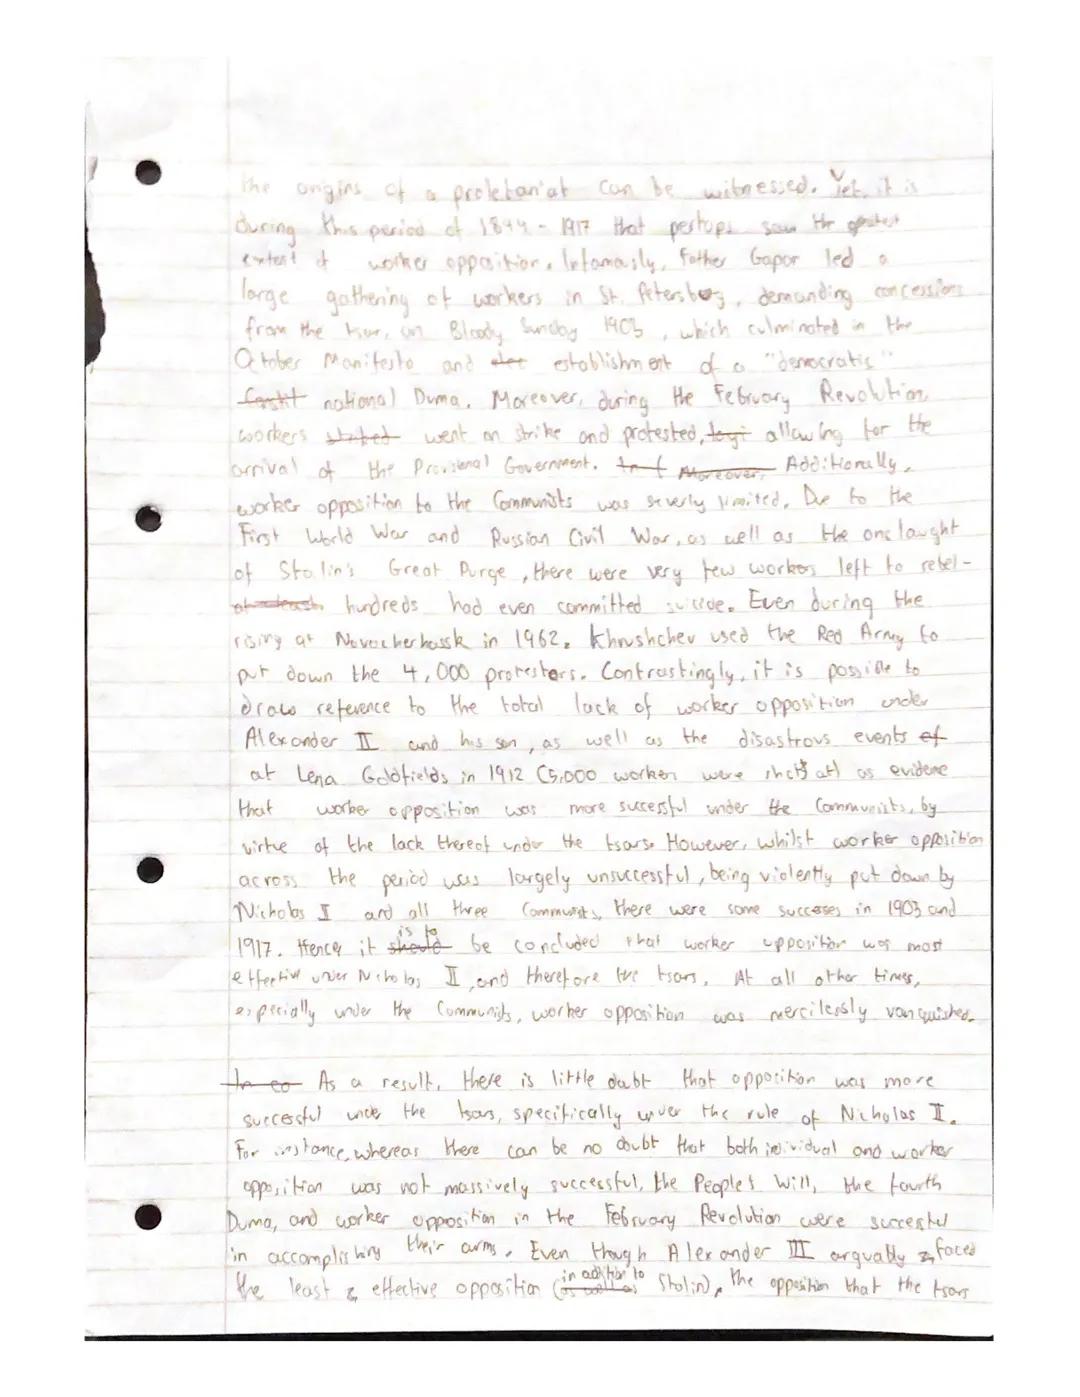 the origins of a proletariat can be witnessed. Yet, it is
during this period of 1894 - 1917 that perhaps saw the greatest
extent of worker opposition. Infamously, Father Gapon led a
large gathering of workers in St. Petersburg, demanding concessions
from the tsar, on Bloody Sunday 1905, which culminated in the
October Manifesto and establishment of a "democratic"
national Duma. Moreover, during the February Revolution,
workers went on strike and protested, allowing for the
arrival of the Provisional Government. Moreover, Additionally,
worker opposition to the Communists was severly limited. Due to the
First World War and Russian Civil War, as well as the onslaught
of Stalin's Great Purge, there were very few workers left to rebel -
hundreds had even committed suicide. Even during the
rising at Novocherkassk in 1962, Khrushchev used the Red Army to
put down the 4,000 protestors. Contrastingly, it is possible to
draw reference to the total lack of worker opposition under
Alexander II and his son, as well as the disastrous events of
at Lena Goldfields in 1912 (5,000 workers were shot at) as evidene
that worker opposition was more sucessful under the Communists, by
virtue of the lack thereof under the tsars. However, whilst worker opposition
across the period was largely unsuccessful, being violently put down by
Nicholas II and all three Communists, there were some successes in 1905 and
1917. Hence, it should is to be concluded that worker opposition was most
effective under Nicholas II, and therefore the tsars. At all other times,
especially under the Communists, worker opposition was mercilessly vanquished.
In co As a result, there is little doubt that opposition was more
successful under the tsars, specifically under the rule of Nicholas II.
For instance, whereas there can be no doubt that both individual and worker
opposition was not massively successful, the People's Will, the fourth
Duma, and worker opposition in the February Revolution were sucessful
in accomplishing their aims. Even though Alexander III arguably faced
the least effective opposition (as well as in addition to Stalin), the opposition that the tsars